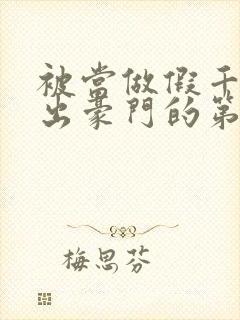 被當做假千
出豪門的第
梅思芬